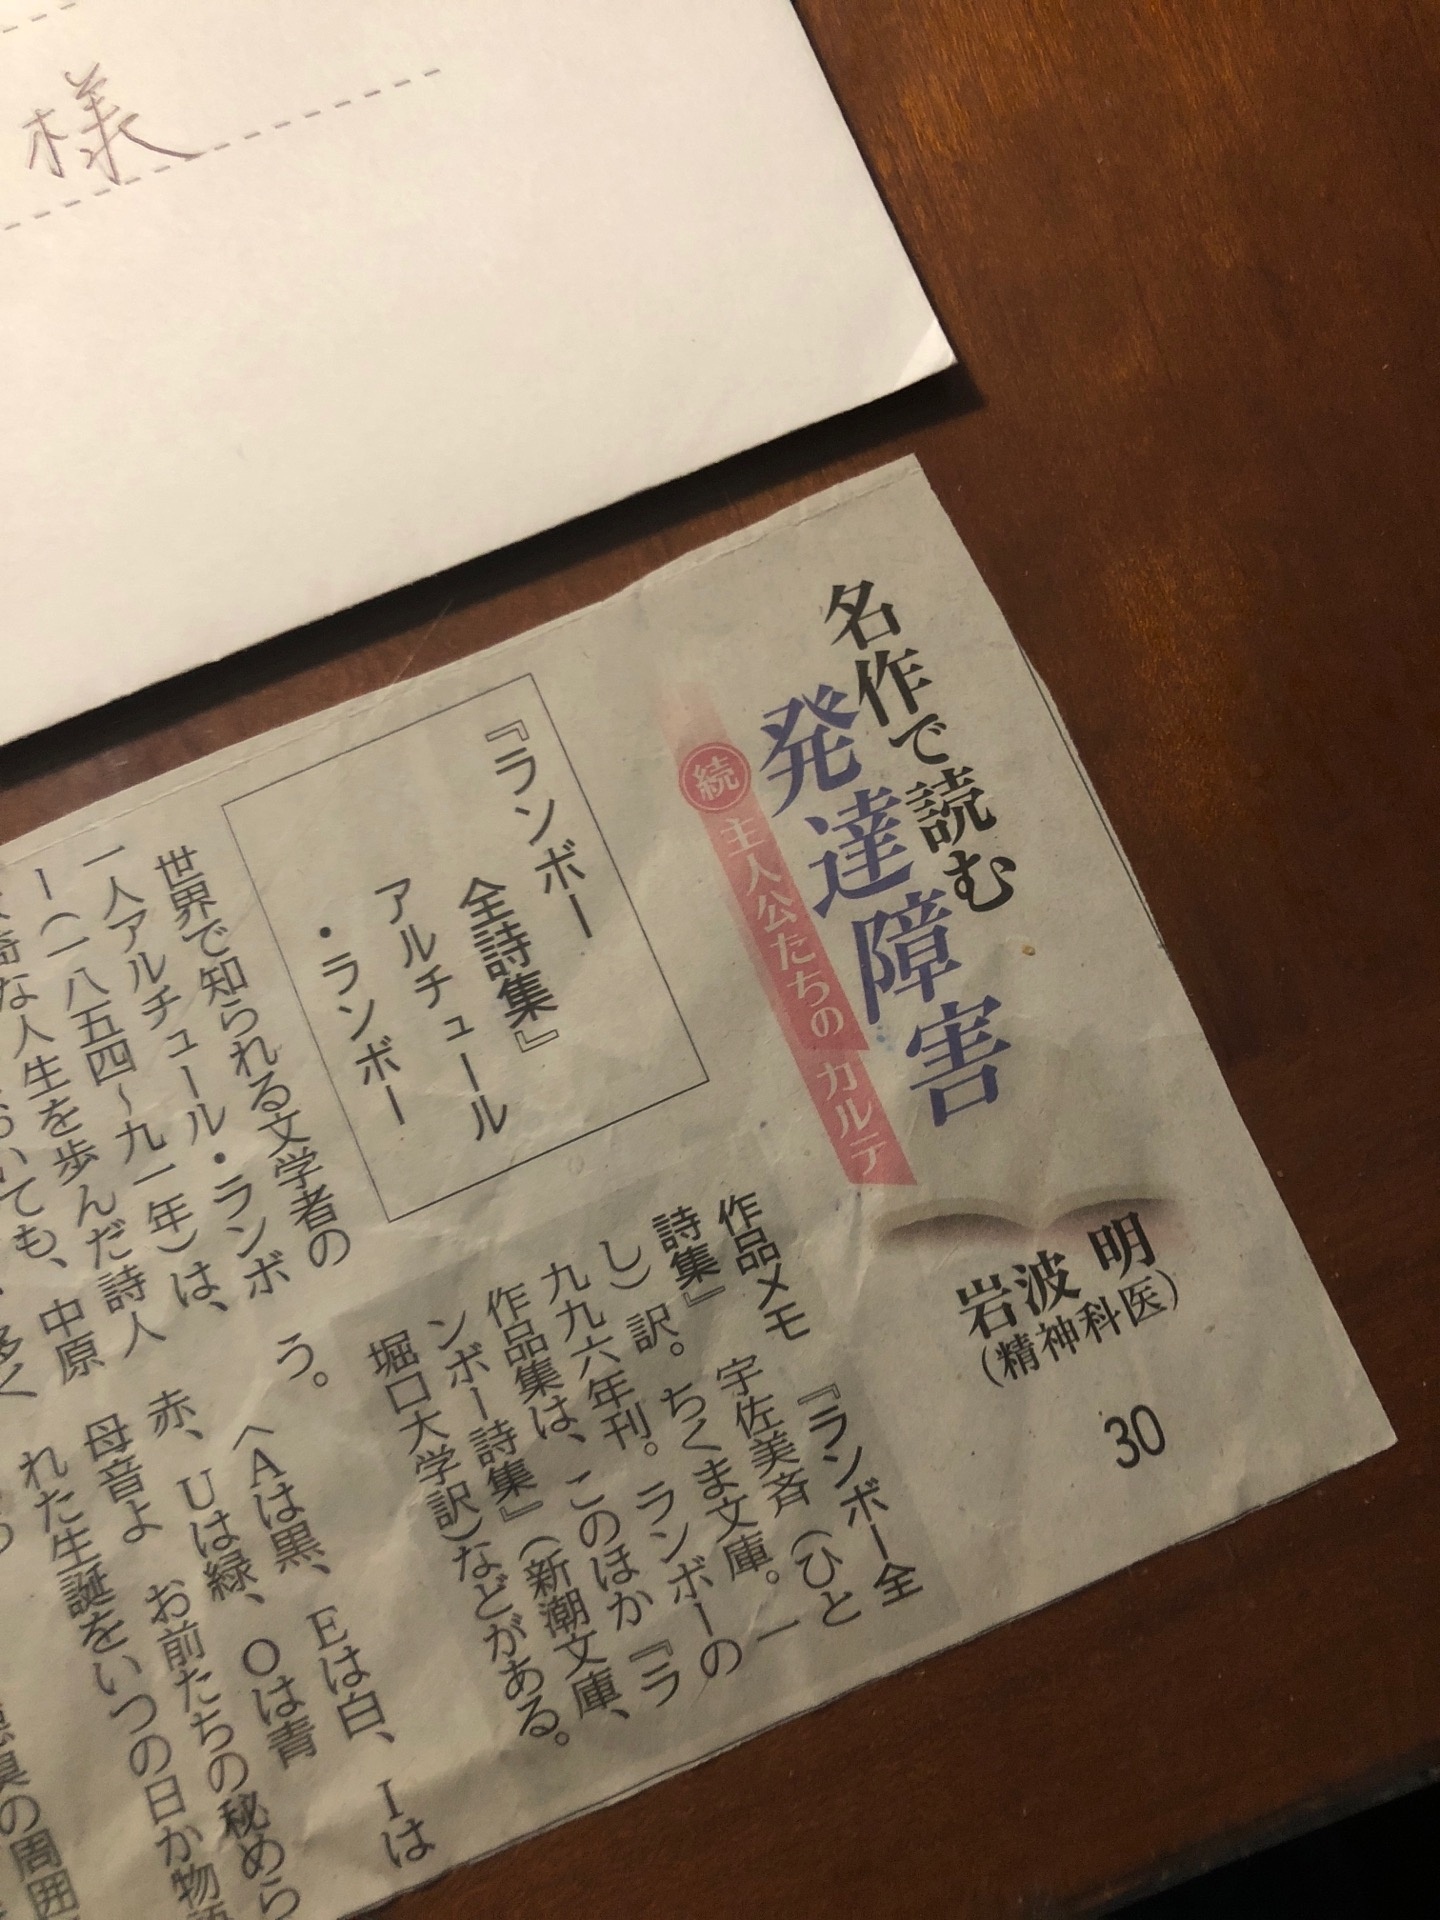 様
名作で読む
発達障害
続 主人公たちのカルテ
岩波 明
(精神科医)
30
『ランボー
全詩集』
アルチュール
・ランボー
作品メモ 『ランボー全
詩集』 宇佐美斉(ひと
し)訳。ちくま文庫。一
九九六年刊。ランボーの
作品集は、このほか『ラ
ンボー詩集』(新潮文庫、
堀口大学訳)などがある。
世界で知られる文学者の
一人アルチュール・ランボ
ー(一八五四〜九一年)は、
な人生を歩んだ詩人
おいても、中原
多く
う。
〈Aは黒、Eは白、Iは
赤、Uは緑、Oは青
母音よ お前たちの秘めら
れた生誕をいつの日か物語
の周囲